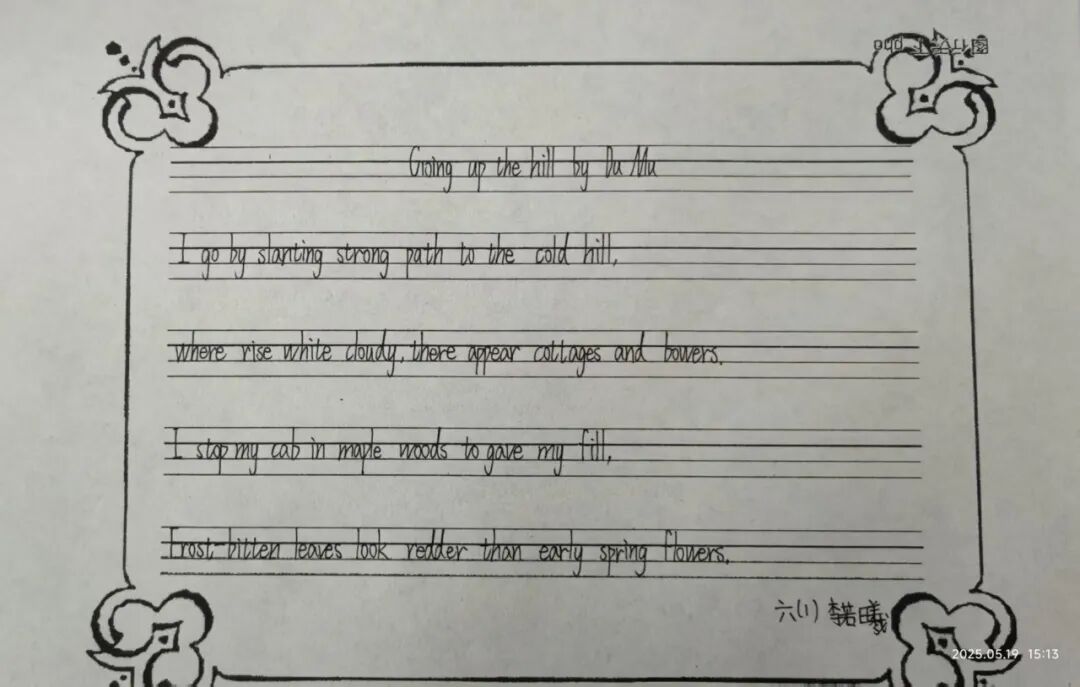 Going up the hill by Du Mu
I go by slanting strong path to the cold hill,
where rise white cloudy, there appear cottages and bowers.
I stop my cab in maple woods to gave my fill,
Frost-bitten leaves look redder than early spring flowers.
六(1) 李若曦
2025.05.19 15:13